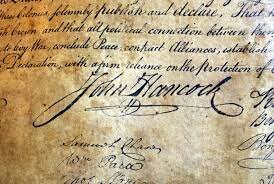 these Colonies, solemnly publish and declare, That
ish Crown, and that all political connection between them
to levy War, conclude Peace, contract Alliances, establish
Declaration, with a firm reliance on the protection of
John Hancock
Samuel Chase
Wm Paca